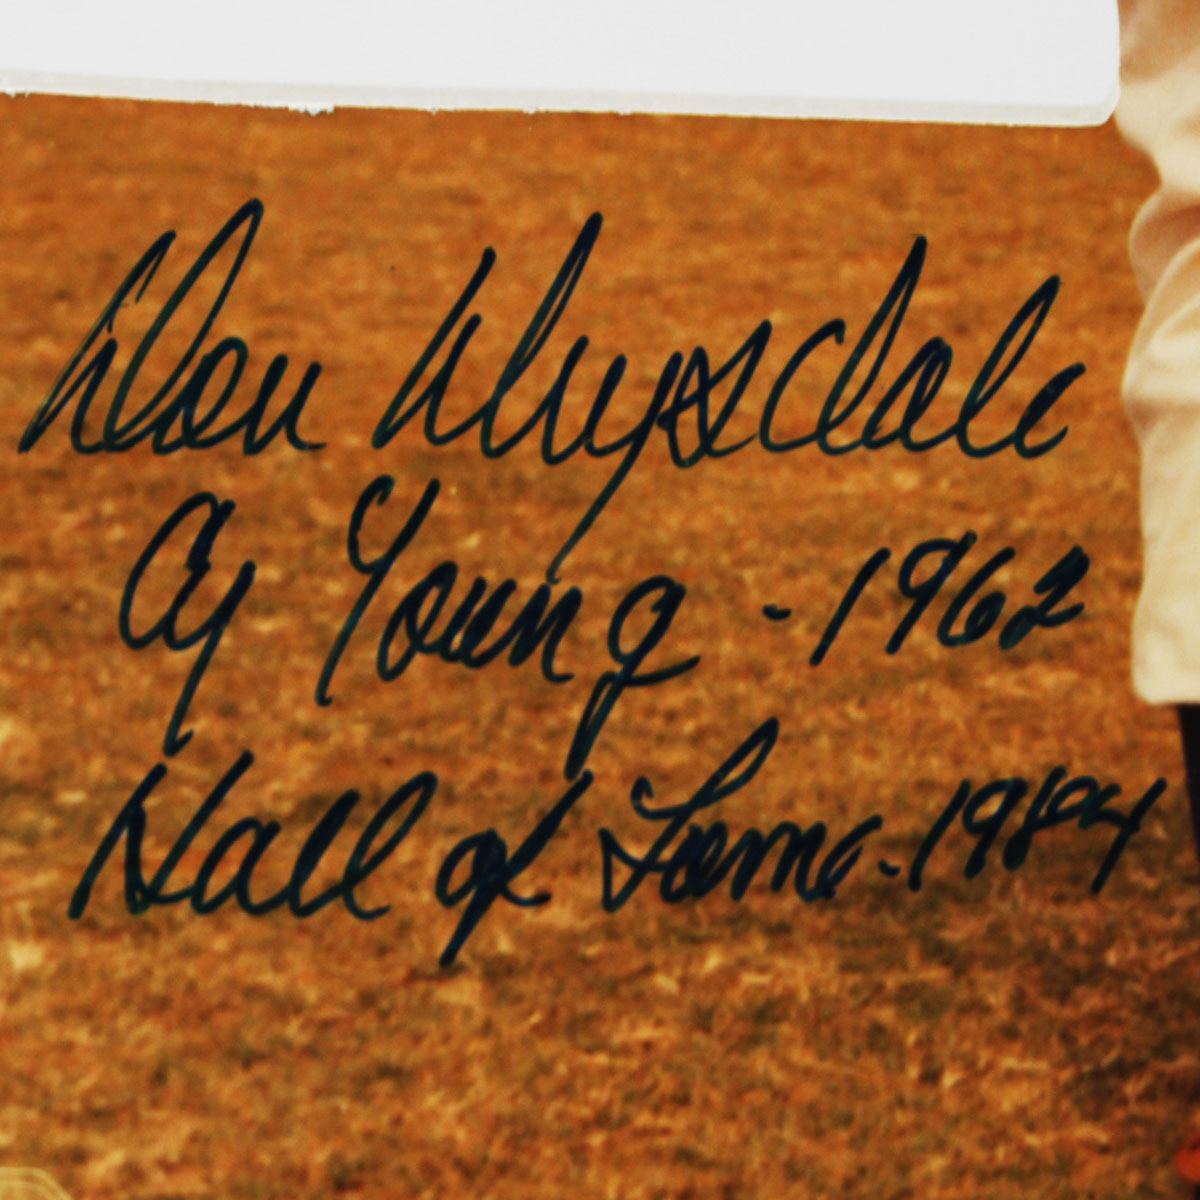 Don Drysdale
Cy Young - 1962
Hall of Fame - 1984